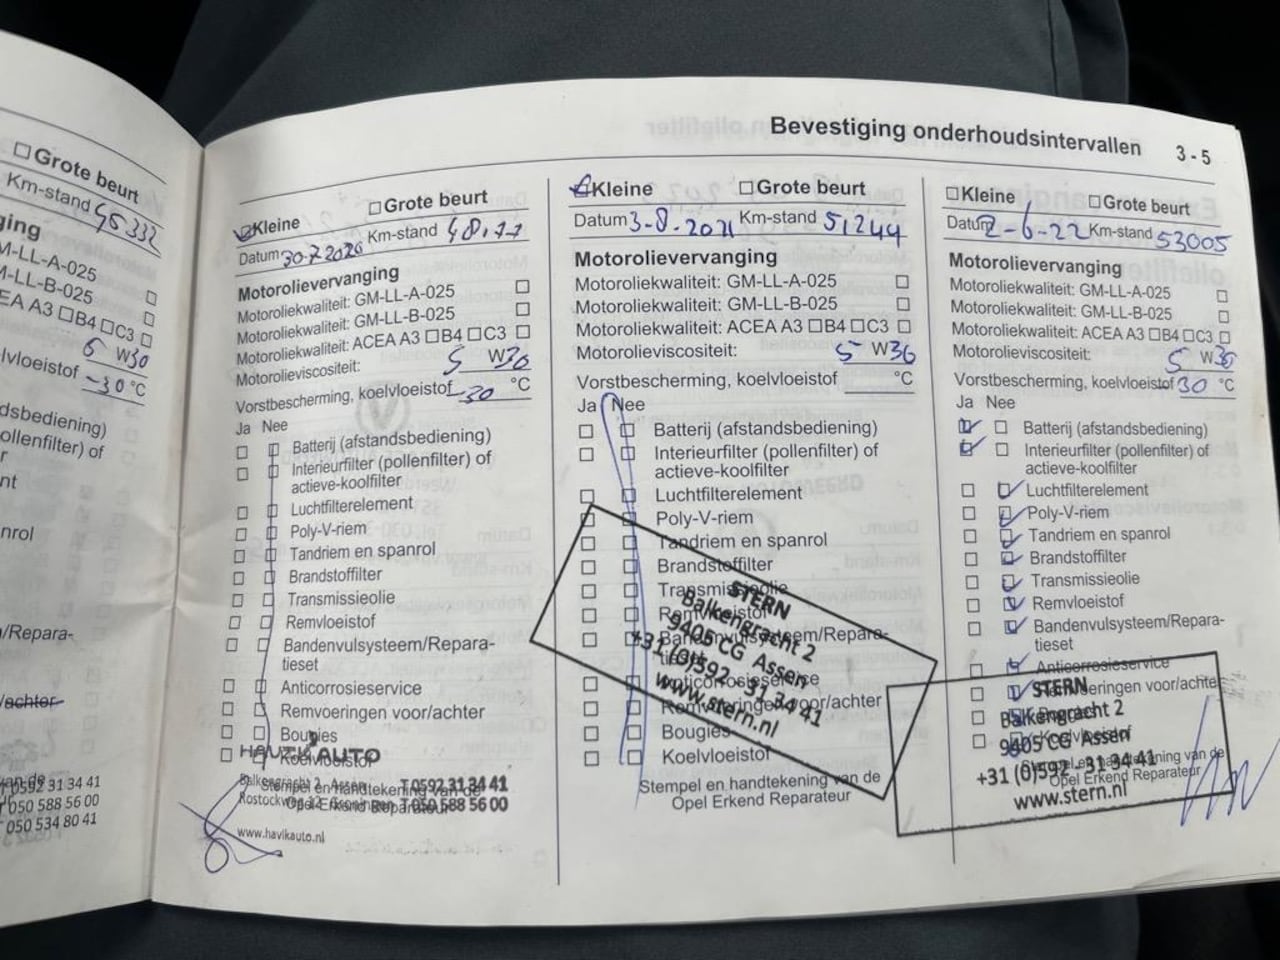 ☐ Grote beurt
Km-stand 45332
ging
M-LL-A-025 ☐
M-LL-B-025 ☐
EA A3 ☐B4 ☐C3 ☐
5 W30
lvloeistof -30 °C
dsbediening)
ollenfilter) of
r
nt
nrol
/Repara-
/achter
van de
T 0592 31 34 41
T 050 588 56 00
T 050 534 80 41
Bevestiging onderhoudsintervallen 3 - 5
☑Kleine ☐Grote beurt
Datum 30-7-2020 Km-stand
Motorolievervanging
Motoroliekwaliteit: GM-LL-A-025 ☐
Motoroliekwaliteit: GM-LL-B-025 ☐
Motoroliekwaliteit: ACEA A3 ☐B4 ☐C3 ☐
Motorolieviscositeit: 5 W30
Vorstbescherming, koelvloeistof -30 °C
Ja Nee
☐ ☐ Batterij (afstandsbediening)
☐ ☐ Interieurfilter (pollenfilter) of
actieve-koolfilter
☐ ☐ Luchtfilterelement
☐ ☐ Poly-V-riem
☐ ☐ Tandriem en spanrol
☐ ☐ Brandstoffilter
☐ ☐ Transmissieolie
☐ ☐ Remvloeistof
☐ ☐ Bandenvulsysteem/Repara-
tieset
☐ ☐ Anticorrosieservice
☐ ☐ Remvoeringen voor/achter
☐ ☐ Bougies
☐ ☐ Koelvloeistof
HAVIK AUTO
Balkengracht 2 Assen T 0592 31 34 41
Stempel en handtekening van de
Rostockweg 12 Groningen T 050 588 56 00
Opel Erkend Reparateur
www.havikauto.nl
☑Kleine ☐Grote beurt
Datum 3-8-2021 Km-stand 51244
Motorolievervanging
Motoroliekwaliteit: GM-LL-A-025 ☐
Motoroliekwaliteit: GM-LL-B-025 ☐
Motoroliekwaliteit: ACEA A3 ☐B4 ☐C3 ☐
Motorolieviscositeit: 5 W30
Vorstbescherming, koelvloeistof °C
Ja Nee
☐ ☐ Batterij (afstandsbediening)
☐ ☐ Interieurfilter (pollenfilter) of
actieve-koolfilter
☐ ☐ Luchtfilterelement
☐ ☐ Poly-V-riem
☐ ☐ Tandriem en spanrol
☐ ☐ Brandstoffilter
☐ ☐ Transmissieolie
☐ ☐ Remvloeistof
☐ ☐ Bandenvulsysteem/Repara-
tieset
☐ ☐ Anticorrosieservice
☐ ☐ Remvoeringen voor/achter
☐ ☐ Bougies
☐ ☐ Koelvloeistof
STERN
Balkengracht 2
9405 CG Assen
+31 (0)592 - 31 34 41
www.stern.nl
Stempel en handtekening van de
Opel Erkend Reparateur
☐Kleine ☐Grote beurt
Datum 2-6-22 Km-stand 53005
Motorolievervanging
Motoroliekwaliteit: GM-LL-A-025 ☐
Motoroliekwaliteit: GM-LL-B-025 ☐
Motoroliekwaliteit: ACEA A3 ☐B4 ☐C3 ☐
Motorolieviscositeit: 5 W30
Vorstbescherming, koelvloeistof 30 °C
Ja Nee
☑ ☐ Batterij (afstandsbediening)
☑ ☐ Interieurfilter (pollenfilter) of
actieve-koolfilter
☐ ☑ Luchtfilterelement
☐ ☑ Poly-V-riem
☐ ☑ Tandriem en spanrol
☐ ☑ Brandstoffilter
☐ ☑ Transmissieolie
☐ ☑ Remvloeistof
☐ ☑ Bandenvulsysteem/Repara-
tieset
☐ ☑ Anticorrosieservice
☐ ☑ Remvoeringen voor/achter
☐ ☑ Bougies
☐ ☑ Koelvloeistof
STERN
Balkengracht 2
9405 CG Assen
+31 (0)592 - 31 34 41
www.stern.nl
Stempel en handtekening van de
Opel Erkend Reparateur